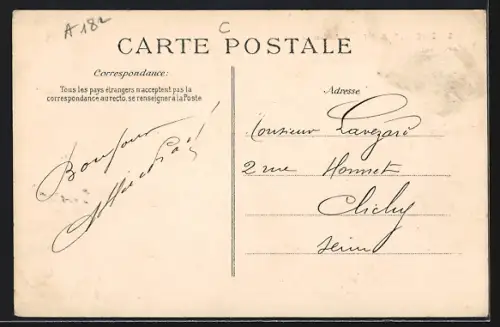 A 182
C
CARTE POSTALE
Correspondance:
Tous les pays étrangers n'acceptent pas la
correspondance au recto, se renseigner à la Poste
Adresse
Bonjour
Monsieur Lavezard
2 rue Honnet
Clichy
Seine